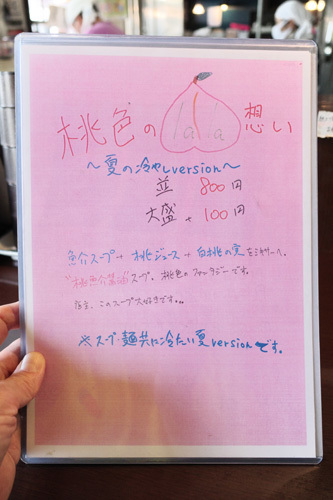 桃色の lala 想い
～夏の冷やしversion～
並 800円
大盛 + 100円
魚介スープ→桃ジュース→白桃の実
スープ、桃色のファンタジーです。
店主、このスープ大好きです。。。
※スープ・麺共に冷たい夏versionです。